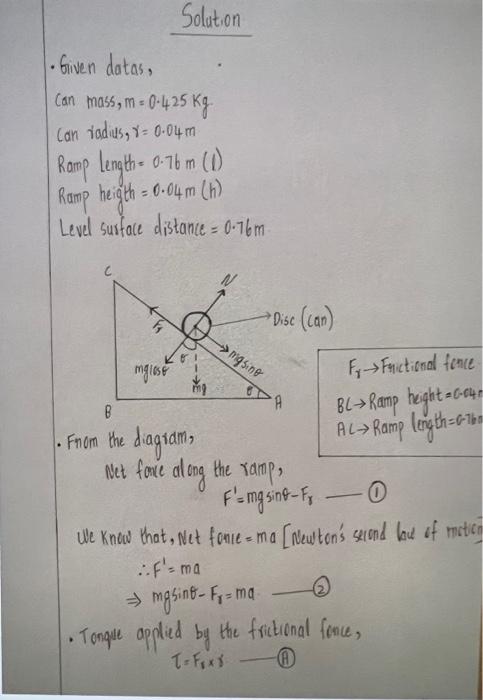 Solution
• Given datas,
Can mass, m = 0.425 Kg.
Can radius, r = 0.04m
Ramp Length = 0.76 m (l)
Ramp heigth = 0.04m (h)
Level surface distance = 0.76m
C
N
Fr
Disc (can)
mgcosθ
θ
mg
mgsinθ
θ
B
A
Fr → Frictional force
BC → Ramp height = 0.04m
AC → Ramp length = 0.76m
• From the diagram,
Net force along the ramp,
F' = mg sinθ - Fr — ①
We Know that, Net force = ma [Newton's second law of motion
∴ F' = ma
⇒ mgsinθ - Fr = ma — ②
• Torque applied by the frictional force,
τ = Fr × r — Ⓐ